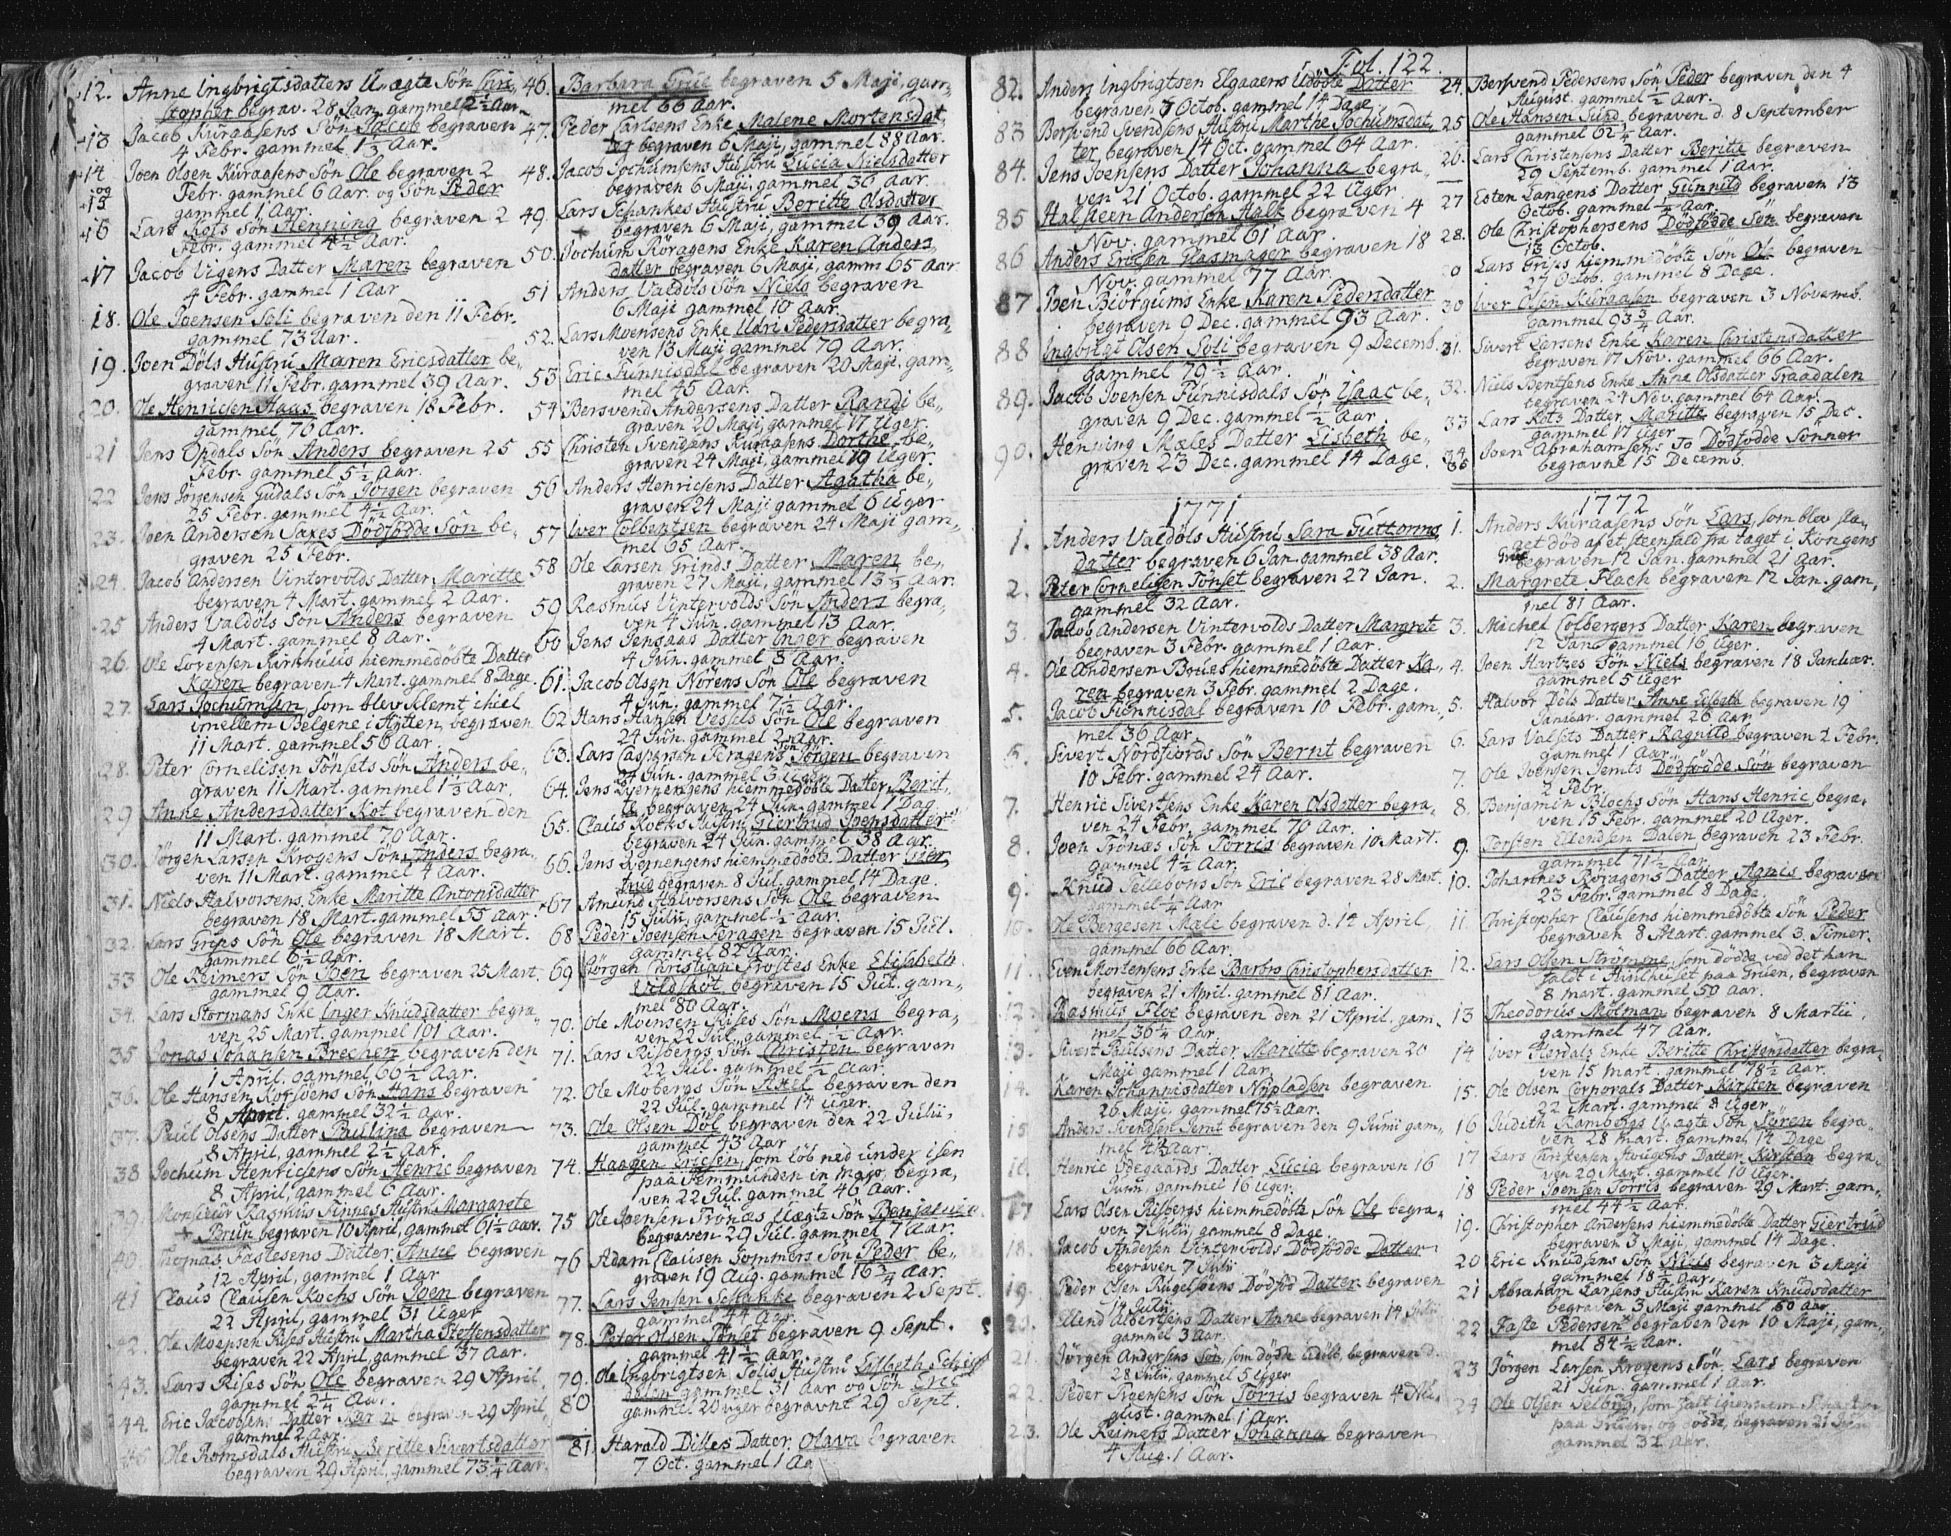 12. Anne Ingbrigtsdatters Uægte Sön Chri,
stopher begrav. 28 Jan. gammel 2½ Aar
13 Jacob Kuraasens Sön Jacob begraven
4 Febr. gammel 1⅓ Aar.
14 Joen Olsen Kuraasens Sön Ole begraven 2
og
15 Febr. gammel 6 Aar. og Sön Peder
gammel 1 Aar.
16 Lars Kots Sön Henning begraven 2
Febr. gammel 4½ Aar.
17 Jacob Vigens Datter Maren begraven
4 Febr. gammel 1 Aar
18. Ole Joensen Soli begraven den 11 Febr.
gammel 73 Aar.
19. Joen Döls Hustru Maren Ericsdatter be,
graven 11 Febr. gammel 39 Aar.
20. Ole Henricsen Haas begraven 18 Febr.
gammel 76 Aar.
21 Jens Opdals Sön Anders begraven 25
Febr. gammel 5½ Aar.
22 Jens Jörgensen Gudals Sön Jörgen begraven
25 Febr. gammel 4½ Aar.
23. Joen Andersen Saxes Dödfödde Sön be,
graven 25 Febr.
24. Jacob Andersen Vintervolds Datter Maritte
begraven 4 Mart. gammel 2 Aar.
25 Anders Valdöls Sön Anders begraven
4 Mart. gammel 8 Aar.
26. Ole Lorensen Kirkhuus hiemmedöbte Datter
Karen begraven 4 Mart. gammel 8 Dage.
27. Lars Jochumsen, som blev klemt ihiel
imellem Belgene i Hytten, begraven
11 Mart. gammel 56 Aar.
28. Peter Cornelisen Tönsets Sön Anders be,
graven 11 Mart. gammel 1⅓ Aar.
29 Anne Andersdatter Kot begraven den
11 Mart. gammel 70 Aar.
30. Jörgen Larsen Krogens Sön Anders begra,
ven 11 Mart. gammel 4 Aar.
31. Niels Halvorsens Enke Maritte Antonisdatter
begraven 18 Mart. gammel 55 Aar.
32. Lars Grips Sön Ole begraven 18 Mart.
gammel 6½ Aar.
33 Ole Reimers Sön Joen begraven 25 Mart.
gammel 9 Aar.
34. Lars Stormans Enke Inger Knudsdatter begra
ven 25 Mart. gammel 101 Aar.
35 Jonas Johansen Brechen begraven den
1 April. gammel 60½ Aar.
36. Ole Hansen Korsöens Sön Hans begraven
8 April. gammel 32½ Aar.
37. Paul Olsens Datter Paulina begraven
8 April, gammel 2½ Aar.
38 Jochum Henricsens Sön Henric begraven
8 April, gammel 6 Aar.
39. Monsieur Rasmus Finnes Hustru Margarete
Bruun begraven 10 April, gammel 61½ Aar.
40. Thomas Fastesens Datter Anne begraven
12 April, gammel 1 Aar
41 Claus Clausen Kochs Sön Joen begraven
22 April, gammel 31 Uger
42. Ole Moensen Rises Hustru Martha Steffensdatter
begraven 22 April, gammel 37 Aar.
43. Lars Rises Sön Ole begraven 29 April,
gammel 2¼ Aar.
44. Eric Jacobsens Datter Karen begraven 29 April,
gammel 2 Aar.
45 Ole Romsdals Hustru Beritte Sivertsdatter
begraven 29 April, gammel 73¼ Aar.
46. Barbara Grue begraven 5 Maji, gam,
mel 66 Aar.
47. Peder Carlsens Enke Malene Mortensdat,
ter begraven 6 Maji, gammel 88 Aar.
48. Jacob Jochumsens Hustru Lucia Nielsdatter
begraven 6 Maji, gammel 36 Aar.
49. Lars Schankes Hustru Beritte Olsdatter
begraven 6 Maji, gammel 39 Aar.
50. Jochum Röragens Enke Karen Anders,
datter begraven 6 Maji, gamm 65 Aar.
51 Anders Valdöls Sön Niels begraven
6 Maji gammel 10 Aar.
52. Lars Moensens Enke Udri Pedersdatter begra,
ven 13 Maji gammel 79 Aar.
53. Eric Funnisdal begraven 20 Maji, gam,
mel 45 Aar.
54. Bersvend Andersens Datter Randi be,
graven 20 Maji, gammel 17 Uger.
55 Christen Svendsens Kuraasens Dorthe be,
graven 24 Maji, gammel 19 Uger.
56 Anders Henricsens Datter Agatha be,
graven 24 Maji gammel 6 Uger
57 Iver Colbentsen begraven 24 Maji gam,
mel 65 Aar.
58 Ole Larsen Grinds Datter Maren be,
graven 27 Maji, gammel 13 Aar.
59 Rasmus Vintervolds Sön Anders begra,
ven 4 Jun. gammel 13 Aar.
60 Jens Jensaas Datter Inger begraven
4 Jun. gammel 8 Aar.
61. Jacob Olsen Norens Sön Ole begraven
4 Jun. gammel 7½ Aar.
62 Hans Hansen Vessels Sön Ole begraven
24 Jun. gammel 2 Aar.
63. Lars Caspersen Feragens Sön Jörgen begraven
24 Jun. gammel 3 Uger.
64. Jens hiemmedöbte Datter Berit,
te begraven 24 Jun. gammel 1 Dag
65. Claus Kochs Hustru Giertrud Joensdatter
begraven 24 Jun. gammel 38 Aar.
66. Jens hiemmedöbte Datter Gier,
trud begraven 8 Jul. gammel 14 Dage.
67 Amund Halvorsens Sön Ole begraven
15 Julii, gammel ½ Aar.
68 Peder Joensen Feragen begraven 15 Jul.
gammel 82 Aar.
69 Jörgen Christian Frostes Enke Elisabeth
Valdskot begraven 15 Jul. gam,
mel 80 Aar.
70. Ole Moensen Rises Sön Moens begra,
ven 22 Jul. gammel ½ Aar.
71. Lars Risbergs Sön Christen begraven
22 Jul. gammel ½ Aar.
72. Ole Mobergs Sön Axel begraven den
22 Jul. gammel 14 Uger.
73. Ole Olsen Döl begraven den 22 Julii,
gammel 43 Aar
74. Haagen Ericsen, som löb ned under isen
paa Femmunden in majo, begra,
ven 22 Jul. gammel 46 Aar.
75 Ole Joensen Trönæs Uægte Sön
begraven 29 Jul. gammel 7 Aar.
76 Adam Clausen Sommers Sön Peder be,
graven 19 Aug. gammel 16¾ Aar.
77. Lars Jensen Schanke begraven 2 Sept.
gammel 44 Aar.
78. Peter Olsen Tönset begraven 9 Sept.
gammel 41½ Aar.
79. Ole Ingbrigtsen Solis Hustru Lisbeth
80 dalen gammel 31 Aar og Sön Eric
gammel 20 uger begravnt 29 Sept.
81 Harald Dilles Datter Olava begraven
7 Oct. gammel 1 Aa
Fol. 122.
82. Anders Ingbrigtsen Elgaaens Udöbte Datter
begraven 7 Octob. gammel 14 Dage
83 Bersvend Svendsens Hustru Marthe Jochumsdat,
ter begraven 14 Oct. gammel 64 Aar.
84. Jens Joensens Datter Johanna begra,
ven 21 Octob. gammel 22 Uger
85 Halsteen Andersen Halt begraven 4
Nov. gammel 61 Aar.
86 Anders Ericsen Glasmager begraven 18
Nov. gammel 77 Aar.
87 Joen Biörgums Enke Karen Pedersdatter
begraven 9 Dec. gammel 93 Aar.
88 Ingbrigt Olsen Soli begraven 9 Decemb.
gammel 79½ Aar.
89. Jacob Joensen Funnisdals Sön Isaac be,
graven 9 Dec. gammel ½ Aar
90. Henning Mæles Datter Lisbeth be,
graven 23 Dec. gammel 14 Dage.
1771
1. Anders Valdöls Hustru Sara Guttorms,
datter begraven 6 Jan. gammel 38 Aar.
2. Peter Cornelisen Tönset begraven 27 Jan.
gammel 32 Aar.
3. Jacob Andersen Vintervolds Datter Margrete
begraven 3 Febr. gammel 1 Aar.
4. Ole Andersen Boues hiemmedöbte Datter Ka,
ren begraven 3 Febr. gammel 2 Dage.
5. Jacob Funnisdal begraven 10 Febr. gam,
mel 36 Aar.
6. Sivert Nordfiords Sön Bernt begraven
10 Febr. gammel 24 Aar.
7. Henric Sivertsens Enke Karen Olsdatter begra,
ven 24 Febr. gammel 70 Aar.
8. Joen Trönæs Sön Torris begraven 10 Mart.
gammel 4½ Aar.
9. Knud Tellebons Sön Eric begraven 28 Mart.
gammel ¼ Aar
10. Ole Bergesen Male begraven d. 14 April
gammel 66 Aar.
11. Even Mortensens Enke Barbro Christophersdatter
begraven 21 April. gammel 81 Aar.
12. Rasmus Floe begraven den 21 April, gam,
mel 36¼ Aar.
13. Sivert Paulsens Datter Maritte begraven 20
Maji gammel 1 Aar.
14. Karen Johannisdatter begraven
26 Maji, gammel 75½ Aar.
15 Anders Svendsen Jemt begraven den 9 Junii gam,
mel 42 Aar.
16 Henric Ödegaards Datter Lucia begraven 16
Junii, gammel 16 Uger.
17 Lars Olsen Risbergs hiemmedöbte Sön Ole begra,
ven 7 Julii, gammel 8 Dage.
18. Jacob Andersen Vintervolds Dödfödde Datter
begraven 7 Julii.
19. Peder Olsen Rugelsöens Dödföd Datter begraven
14 Julii.
20. Ellend Albertsens Datter Anne begraven 14 Julii
gammel 3 Aar.
21. Jörgen Andersens Sön, som döde udöbt, begraven d.
28 Julii, gammel 5 Uger
22. Peder Sön Torris begraven 4 Au,
gust. gammel 1 Aar.
23. Ole Reimers Datter Johanna begraven
4 Aug. 1 Aar.
24. Bersvend Pedersens Sön Peder begraven den 4
August. gammel ½ Aar.
25 Ole Hansen Sund begraven d. 8 September
gammel 62¼ Aar.
26. Lars Christensens Datter Beritte begraven
29 Septemb. gammel 1 Aar.
27 Esten Langens Datter Gunnild begraven 13
Octob. gammel ¼ Aar.
28. Ole Christophersens Dödfödde Sön begraven
13 Octob.
Lars Grips hiemmedöbte Sön Ole begraven
27 Octob. gammel 8 Dage.
30 Iver Olsen Kuraasen begraven 3 Novemb.
gammel 93¾ Aar.
31. Sivert Larsens Enke Karen Christensdatter
begraven 17 Nov. gammel 66 Aar.
32. Niels Bentsens Enke Anne Olsdatter Graadalen
begraven 24 Nov. gammel 64 Aar.
33 Lars Kots Datter Maritte begraven 15 Dec.
gammel 17 Uger
34.
35 Joen Abrahamsens To Dödfödde Sönner
begravne 15 Decemb.
1772
1. Anders Kuraasens Sön Lars, som blev sla,
get död af et steenfald fra taget i Kongens
Grue begraven 12 Jan. gammel 21 Aar.
2. Margrete Flach begraven 12 Jan. gam,
mel 81 Aar.
3. Michel Colbergers Datter Karen begraven
12 Jan. gammel 16 Uger.
4. Joen Hartzes Sön Niels begraven 18 Januar.
gammel 5 Uger
5. Halvor Döls Datter Anne Lisbeth begraven 19
Januar. gammel 26 Aar
6. Lars Valsets Datter Ragnild begraven 2 Febr.
gammel 1 Aar.
7. Ole Joensen Jemts Dödfödde Sön begraven
2 Febr.
8. Benjamin Blochs Sön Hans Henric begra,
ven 15 Febr. gammel 20 Uger.
9. Torsten Ellendsen Dalen begraven 23 Febr.
gammel 71½ Aar.
10. Johannes Röragens Datter Agnis begraven
23 Febr. gammel 8 Dage.
11. Christopher Clausens hiemmedöbte Sön Peder
begraven 8 Mart. gammel 3 Timer.
12. Lars Olsen Strömme, som dödde ved det han
faldt i Hiulhuset paa Gruen, begraven
8 mart. gammel 50 Aar.
13 Theodorus Molman begraven 8 Martii,
gammel 47 Aar.
14 Iver Herdals Enke Beritte Christensdatter begra,
ven 15 mart. gammel 78½ Aar.
15. Ole Olsen Corporals Datter Kirsten begraven
22 Mart. gammel 8 Uger
16 Judith Rambergs Uægte Sön Sören begra,
ven 28 mart. gammel 14 Dage
17 Lars Christensen Haugens Datter Kirsten begra,
ven 29 Mart. gammel 10 Uger.
18 Peder Joensen Törris begraven 29 Mart. gam,
mel 44½ Aar.
19. Christopher Andersens hiemmedöbte Datter Giertrud
begraven 3 Maji, gammel 14 Dage.
20 Eric Knudsens Sön begraven 3 Maji
gammel 18 Aar.
21 Abraham Larsens Hustru Karen Knudsdatter
begraven 3 Maji gammel 60 Aar
22 Faste Pedersen begraven den 10 Maji, gam,
mel 84½ Aar.
23 Jörgen Larsen Krogens Sön Lars begraven
21 Jun. gammel 1 Aar.
24 Ole Olsen Selboe, som falt igiennem
paa Gruen, og döde, begraven 21 Jun
gammel 32 Aar.